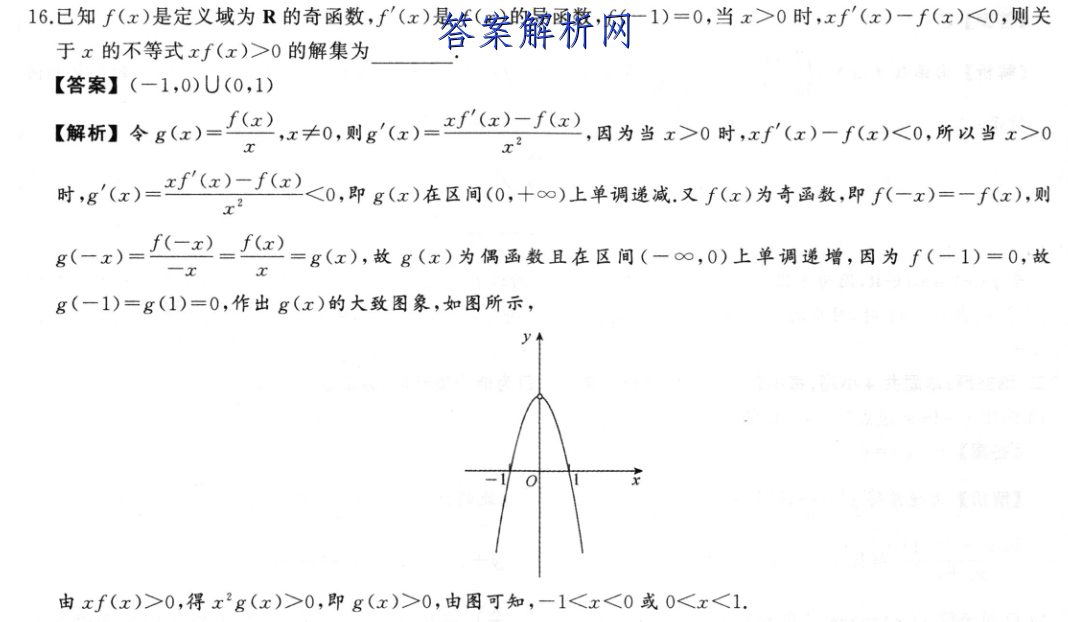 16.已知 f(x)是定义域为 R 的奇函数,f′(x)是 f(x)的导函数,f(-1)=0,当 x>0 时,xf′(x)-f(x)<0,则关
于 x 的不等式 xf(x)>0 的解集为________.
答案解析网
【答案】(-1,0)∪(0,1)
【解析】令 g(x)=f(x)/x,x≠0,则g′(x)=(xf′(x)-f(x))/x²,因为当 x>0 时,xf′(x)-f(x)<0,所以当 x>0
时,g′(x)=(xf′(x)-f(x))/x²<0,即 g(x)在区间(0,+∞)上单调递减.又 f(x)为奇函数,即 f(-x)=-f(x),则
g(-x)=f(-x)/(-x)=f(x)/x=g(x),故 g(x)为偶函数且在区间(-∞,0)上单调递增,因为 f(-1)=0,故
g(-1)=g(1)=0,作出 g(x)的大致图象,如图所示,
y
-1 O 1 x
由 xf(x)>0,得 x²g(x)>0,即 g(x)>0,由图可知,-1<x<0 或 0<x<1.